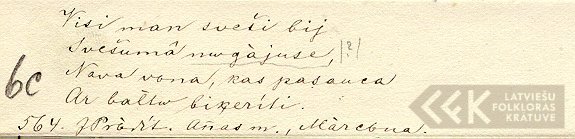 Visi man sveši bij
Svešumâ nugàjuse, |?|
Nava vona, kas pasauca
Ar bałtu biķerīti.
6c
564. J Pràdít. Añas m., Màrcbna.
LATVIEŠU
FOLKLORAS
KRATUVE